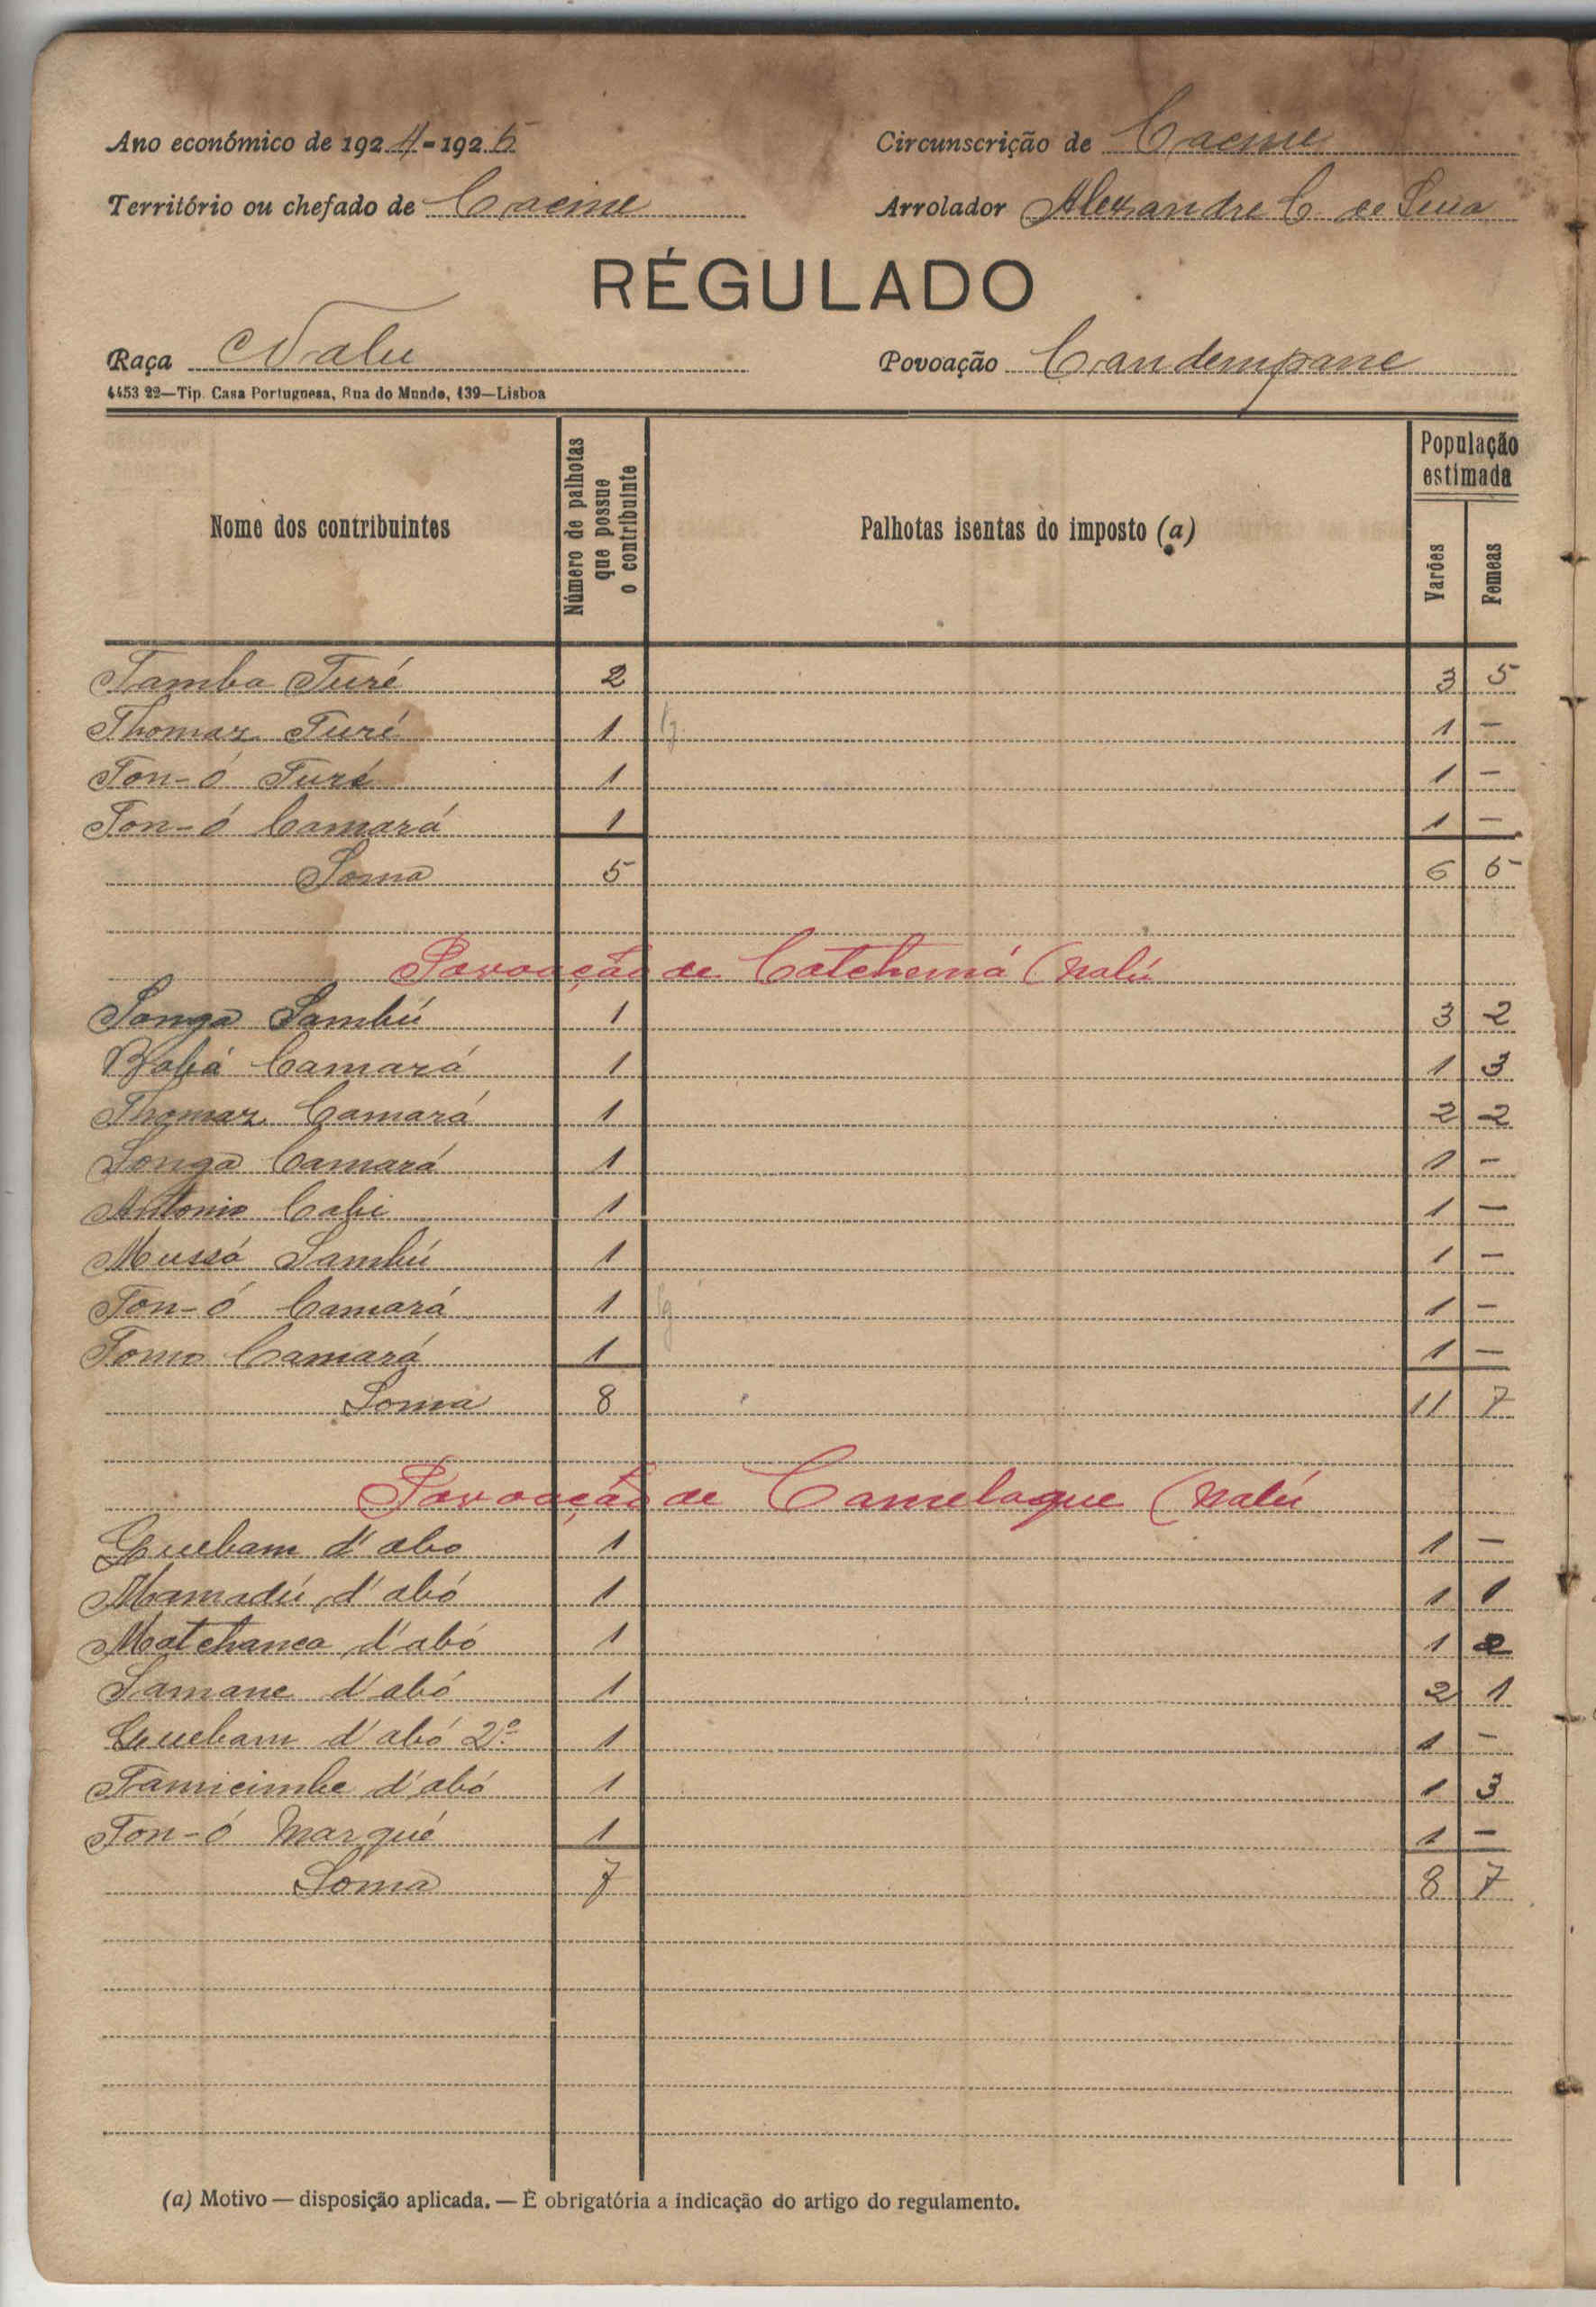 Ano económico de 1924-1925 Circunscrição de Cacine
Território ou chefado de Cacine Arrolador Alexandre C. de Sena
RÉGULADO
Raça Nalu Povoação Candempane
4453 22—Tip. Casa Portuguesa, Rua do Mundo, 139—Lisboa
Nome dos contribuintes Número de palhotas que possue o contribuinte Palhotas isentas do imposto (a) População estimada Varões Femeas
Tamba Turé 2 3 5
Thomaz Turé 1 1 —
Ton-ó Turé 1 1 —
Ton-ó Camará 1 1 —
Soma 5 6 5
Povoação de Catchemá (Nalú
Songa Sambú 1 3 2
Babá Camará 1 1 3
Thomaz Camará 1 2 2
Songa Camará 1 1 —
Antonio Cabi 1 1 —
Mussá Sambú 1 1 —
Ton-ó Camará 1 1 —
Tomo Camará 1 1 —
Soma 8 11 7
Povoação de Camelaque (Nalú
Guebam d'abo 1 1 —
Mamadú d'abó 1 1 1
Matchanca d'abó 1 1 2
Samane d'abó 1 2 1
Guebam d'abó 2º 1 1 —
Tamicimbe d'abó 1 1 3
Ton-ó Marqué 1 1 —
Soma 7 8 7
(a) Motivo — disposição aplicada. — É obrigatória a indicação do artigo do regulamento.